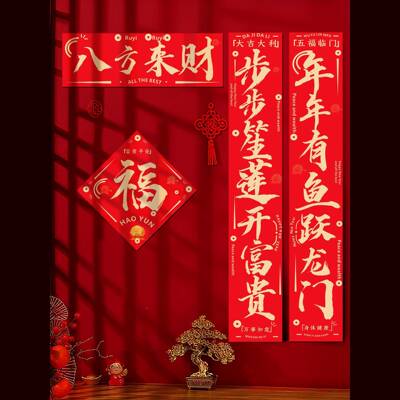 Ruyi Ruyi
八方来财
ALL THE BEST
福
HAO YUN
五福临门
年年有鱼跃龙门
Peace and wealth
Peace and wealth
身体健康
DA JI DA LI
大吉大利
步步笙莲开富贵
Peace and wealth
万事如意